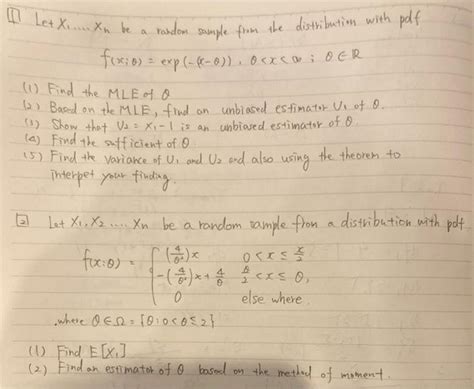 1 Let X1, .... Xn be a random sample from the distribution with pdf
f(x;θ) = exp(-(x-θ)), θ<x<∞ ; θ∈ℝ
(1) Find the MLE of θ
(2) Based on the MLE, find an unbiased estimator U1 of θ.
(3) Show that U2 = X1 - 1 is an unbiased estimator of θ.
(4) Find the sufficient of θ
(5) Find the variance of U1 and U2 and also using the theorem to
interpet your finding.
2 Let X1, X2 .... Xn be a random sample from a distribution with pdf
f(x:θ) = { (4/θ²)x 0<x≤ x/2
-(4/θ²)x + 4/θ θ/2 <x≤ θ,
0 else where.
.where θ∈Ω = {θ:0<θ≤2}
(1) Find E[X1]
(2) Find an estimator of θ based on the method of moment.